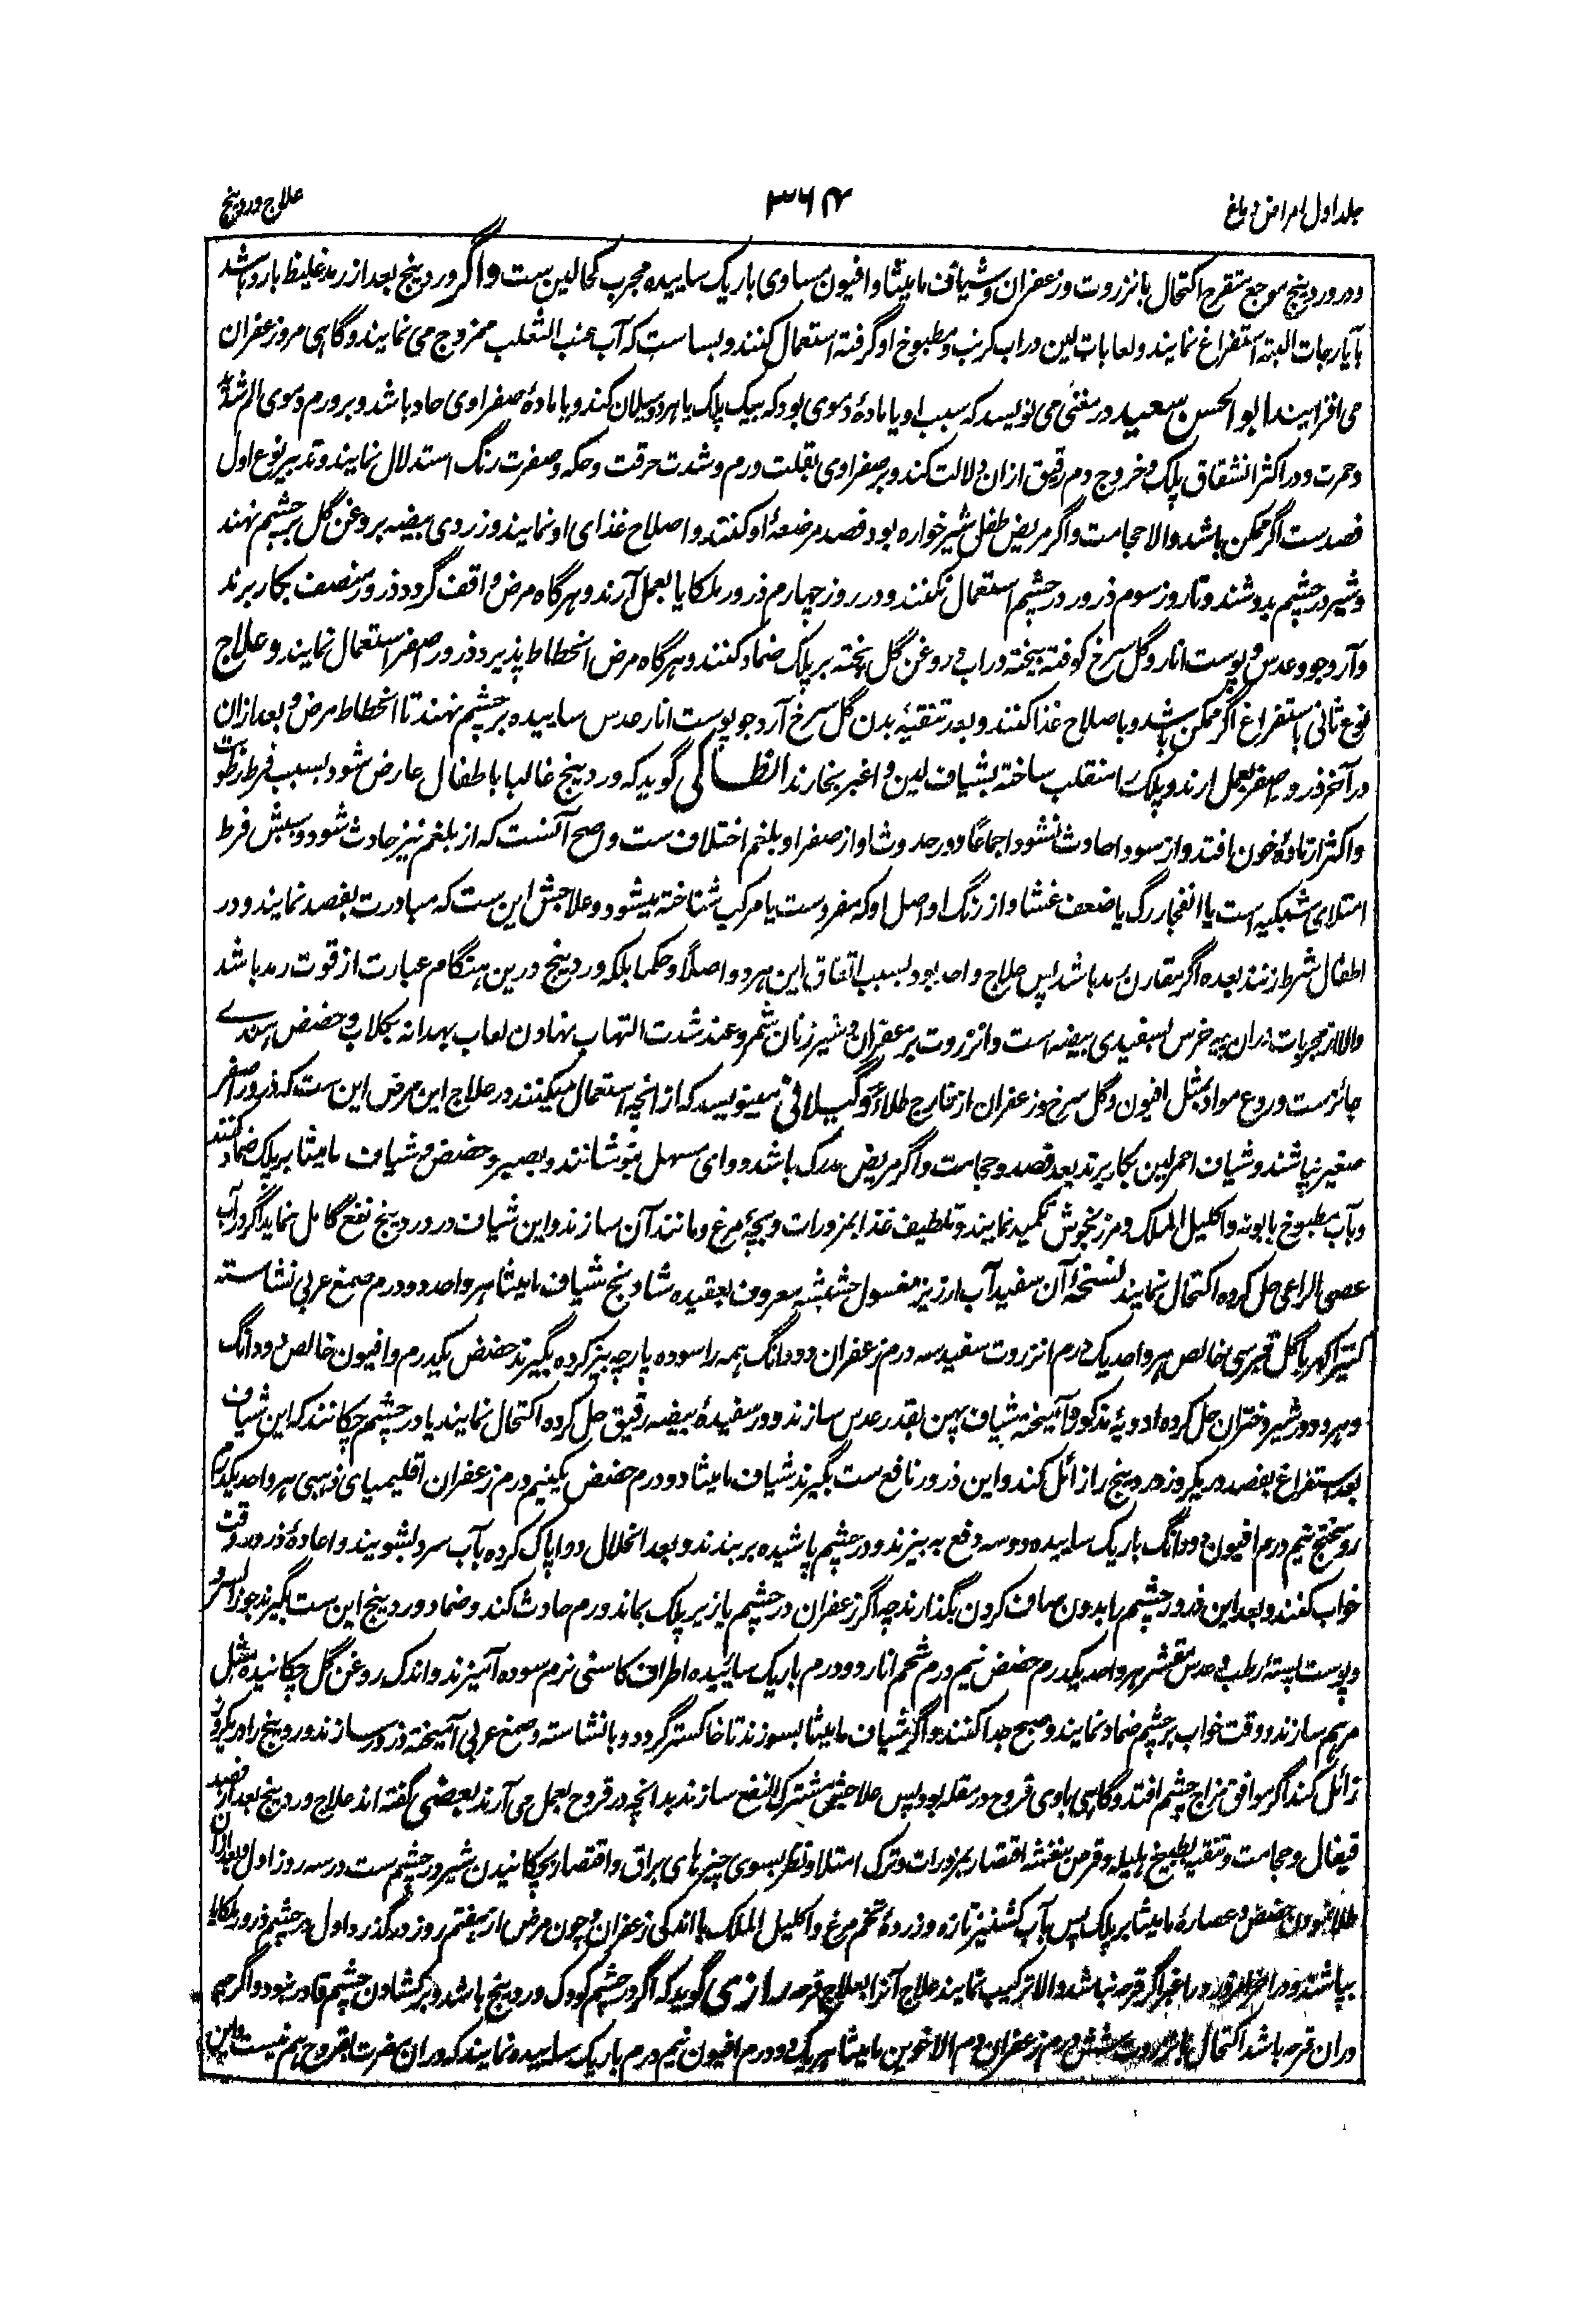 جلد اول امراض دماغ
۳۶۴
علاج وردینج
ودر وردینج موجع متقرح اکتحال بانزروت وزعفران وشیاف مامیثا وافیون مساوی باریک ساییده مجرب کحالین ست واگر وردینج بعد از رمد غلیظ بارد باشد
بایارجات البته استفراغ نمایند ولعابات لین دراب کرنب ومطبوخ او گرفته استعمال کنند وبسا ست که آب عنب الثعلب ممزوج می نمایند وگاهی مروزعفران
می افزایند ابو الحسن سعید در مغنی می نویسد که سبب او یا مادهٔ دموی بود که بیک پلک یا هر دو سیلان کند ویا مادهٔ صفراوی حاد باشد وبر ورم دموی الم شدید
وحمرت ودر اکثر انشقاق پلک وخروج دم رقیق ازان دلالت کند وبر صفراوی بقلت ورم وشدت حرقت وحکه وصفرت رنگ استدلال نمایند وتدبیر نوع اول
فصد ست اگر ممکن باشد والا حجامت واگر مریض طفل شیرخواره بود فصد مرضعهٔ او کنند واصلاح غذای او نمایند وزردی بیضه بروغن گل بر چشم نهند
وشیر در چشم بدوشند وتا روز سوم ذرور در چشم استعمال نکنند ودر روز چهارم ذرور ملکایا بعمل آرند وهرگاه مرض واقف گردد ذرور منصف بکار برند
وآرد جو وعدس وپوست انار وگل سرخ کوفته بیخته دراب وروغن گل پخته بر پلک ضماد کنند وهرگاه مرض انحطاط پذیرد ذرور اصفر استعمال نمایند وعلاج
نوع ثانی باستفراغ اگر ممکن باشد وباصلاح غذا کنند وبعد تنقیهٔ بدن گل سرخ آرد جو پوست انار عدس ساییده بر چشم نهند تا انحطاط مرض وبعد ازان
در آخر ذرور اصفر بعمل ارند وپلک را منقلب ساخته بشیاف لین واغبر بخارند انطاکی گوید که وردینج غالبا باطفال عارض شود بسبب فرط رطوبت
واکثر از مادهٔ خون افتد واز سودا حادث نشود اجماعًا ودر حدوث او از صفرا وبلغم اختلاف ست واصح آنست که از بلغم نیز حادث شود وسببش فرط
امتلای شبکیه است یا انفجار رگ یا ضعف غشا واز رنگ او اصل او که مفرد ست یا مرکب شناخته میشود وعلاجش این ست که مبادرت بفصد نمایند ودر
اطفال شرط زنند بعده اگر مقارن رمد باشد پس علاج واحد بود بسبب اتفاق این هر دو اصلًا وحکمًا بلکه وردینج درین هنگام عبارت از قوت رمد باشد
والا از مجربات دران پیه خرس بسفیدی بیضه است وانزروت بزعفران وشیر زنان وعند شدت التهاب نهادن لعاب بهدانه بگلاب وحضض هندی
جائز ست وردع مواد بمثل افیون وگل سرخ وزعفران از خارج طلاءً وگیلانی مینویسد که از انچه استعمال میکنند در علاج این مرض این ست که ذرور اصفر
صغیر بپاشند وشیاف احمر لین بکار برند بعد فصد وحجامت واگر مریض مدرک باشد دوای مسهل بنوشانند وبصبر وحضض وشیاف مامیثا بر پلک ضماد کنند
وبآب مطبوخ بابونه واکلیل الملک ومرزنجوش تکمید نمایند وتلطیف غذا بمزورات وبچهٔ مرغ ومانند آن سازند واین شیاف در وردینج نفع کامل نماید اگر در آب
عصی الراعی حل کرده اکتحال نمایند نسخهٔ آن سفیدآب ارزیز مغسول معروف بعقیده شادنج شیاف مامیثا هر واحد دو درم صمغ عربی نشاسته
کتیرا کهربا گل قبرسی خالص هر واحد یک درم انزروت سفید سه درم زعفران دو دانگ همه را سوده پارچه بیز کرده بگیرند حضض یکدرم وافیون خالص دو دانگ
وهر دو در شیر دختران حل کرده ادویهٔ مذکور آمیخته شیاف پهن بقدر عدس سازند ودر سفیدهٔ بیضه رقیق حل کرده اکتحال نمایند یا در چشم چکانند که این شیاف
بعد استفراغ بفصد در یکروز وردینج را زائل کند واین ذرور نافع ست بگیرند شیاف مامیثا دو درم حضض یکنیم درم زعفران اقلیمیای ذهبی هر واحد یکدرم
روسختج نیم درم افیون دو دانگ باریک ساییده دو سه دفع به بیزند ودر چشم پاشیده بر بندند وبعد انحلال دوا پاک کرده بآب سرد بشویند واعادهٔ ذرور وقت
خواب کنند وبعد این ذرور چشم را بدون صاف کردن بگذارند چه اگر زعفران در چشم یا زیر پلک بماند ورم حادث کند وضماد وردینج این ست بگیرند جوز السرو
وپوست پستهٔ رطب عدس مقشر هر واحد یکدرم حضض نیم درم شحم انار دو درم باریک سائیده اطراف کاسنی نرم سوده آمیزند واندک روغن گل چکانیده مثل
مرهم سازند ووقت خواب بر چشم ضماد نمایند وصبح جدا کنند واگر شیاف مامیثا بسوزند تا خاکستر گردد وبا نشاسته وصمغ عربی آمیخته ذرور سازند وردینج را در یکروز
زائل کند اگر موافق مزاج چشم افتد وگاهی باوی قروح در مقله بود پس علاجی مشترک النفع سازند بدانچه در قروح بعمل می آرند بعضی گفته اند علاج وردینج بعد از فصد
قیفال وحجامت وتنقیه بطبیخ هلیله وقرص بنفشه اقتصار بمزورات وترک امتلا ونظر بسوی چیزهای براق واقتصار بچکانیدن شیر در چشم ست در سه روز اول وبعد ازان
طلا نمودن حضض وعصارهٔ مامیثا بر پلک پس بآب کشنیز تازه وزردهٔ تخم مرغ واکلیل الملک با اندکی زعفران وچون مرض از هفتم روز درگذرد اول در چشم ذرور ملکایا
بپاشند ودر اخر ذرور اغبر اگر قرحه نباشد والا ترکیب نمایند علاج آنرا بعلاج قرحه رازی گوید که اگر در چشم کودک وردینج باشد وبر کشادن چشم قادر نبود واگرچه
دران قرحه باشد اکتحال بانزروت شش درم زعفران دم الاخوین مامیثا هریک دو درم افیون نیم درم باریک ساییده نمایند که دران مضرت بقروح هم نیست واین